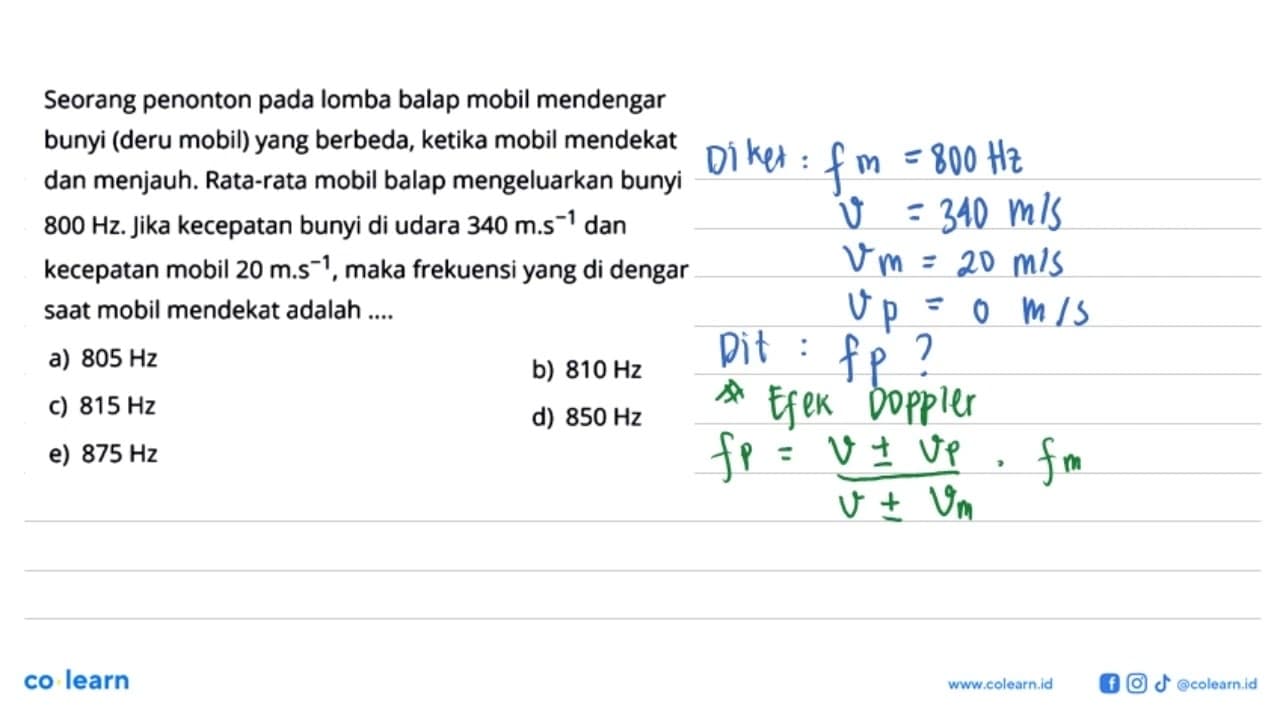 Seorang penonton pada lomba balap mobil mendengar
bunyi (deru mobil) yang berbeda, ketika mobil mendekat
dan menjauh. Rata-rata mobil balap mengeluarkan bunyi
800 Hz. Jika kecepatan bunyi di udara 340 m.s⁻¹ dan
kecepatan mobil 20 m.s⁻¹, maka frekuensi yang di dengar
saat mobil mendekat adalah ....
a) 805 Hz
b) 810 Hz
c) 815 Hz
d) 850 Hz
e) 875 Hz
Diket : fm = 800 Hz
v = 340 m/s
vm = 20 m/s
vp = 0 m/s
Dit : fp ?
* Efek Doppler
fp = (v ± vp) / (v ± vm) . fm
co learn
www.colearn.id
@colearn.id